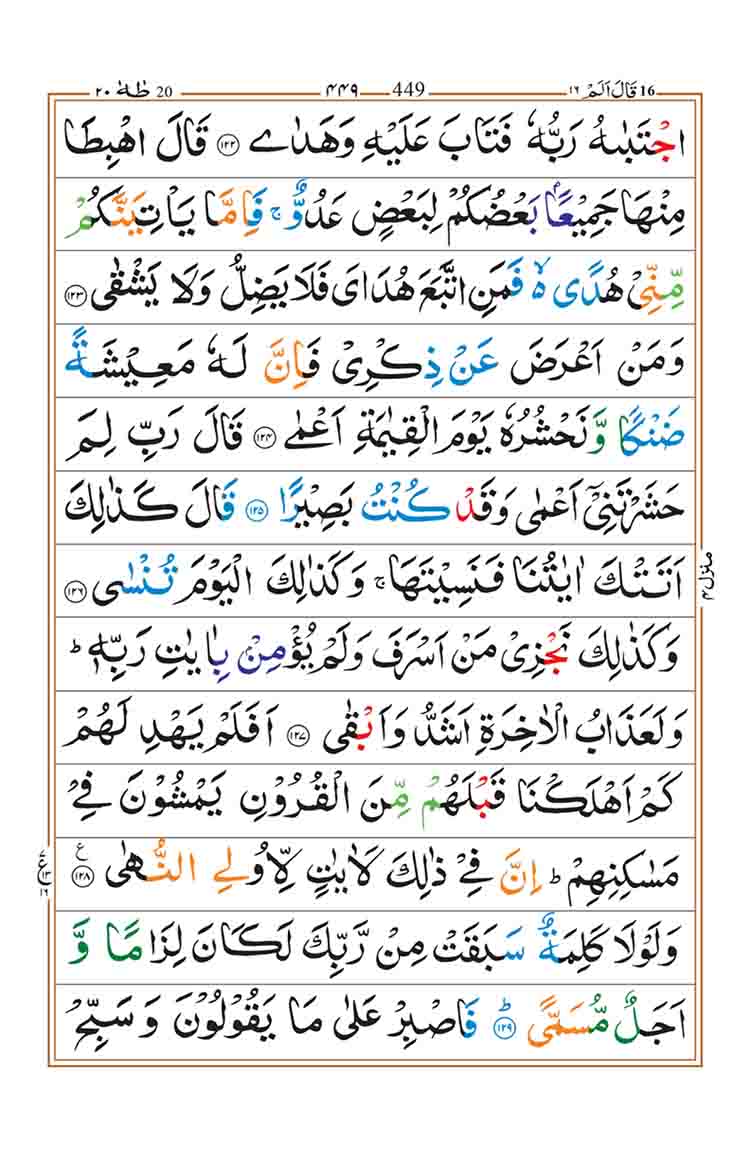 16 قَالَ اَلَمْ ١٦ 449 ۴۴۹ 20 طٰهٰ ٢٠
اجْتَبٰىهُ رَبُّهٗ فَتَابَ عَلَيْهِ وَهَدٰى ﴿۱۲۲﴾ قَالَ اهْبِطَا
مِنْهَا جَمِيْعًۢا بَعْضُكُمْ لِبَعْضٍ عَدُوٌّ ۚ فَاِمَّا يَاْتِيَنَّكُمْ
مِّنِّيْ هُدًى ۙ فَمَنِ اتَّبَعَ هُدَايَ فَلَا يَضِلُّ وَلَا يَشْقٰى ﴿۱۲۳﴾
وَمَنْ اَعْرَضَ عَنْ ذِكْرِيْ فَاِنَّ لَهٗ مَعِيْشَةً
ضَنْكًا وَّ نَحْشُرُهٗ يَوْمَ الْقِيٰمَةِ اَعْمٰى ﴿۱۲۴﴾ قَالَ رَبِّ لِمَ
حَشَرْتَنِيْۤ اَعْمٰى وَقَدْ كُنْتُ بَصِيْرًا ﴿۱۲۵﴾ قَالَ كَذٰلِكَ
اَتَتْكَ اٰيٰتُنَا فَنَسِيْتَهَا ۚ وَكَذٰلِكَ الْيَوْمَ تُنْسٰى ﴿۱۲۶﴾
وَكَذٰلِكَ نَجْزِيْ مَنْ اَسْرَفَ وَلَمْ يُؤْمِنْۢ بِاٰيٰتِ رَبِّهٖ ؕ
وَلَعَذَابُ الْاٰخِرَةِ اَشَدُّ وَاَبْقٰى ﴿۱۲۷﴾ اَفَلَمْ يَهْدِ لَهُمْ
كَمْ اَهْلَكْنَا قَبْلَهُمْ مِّنَ الْقُرُوْنِ يَمْشُوْنَ فِيْ
مَسٰكِنِهِمْ ؕ اِنَّ فِيْ ذٰلِكَ لَاٰيٰتٍ لِّاُولِي النُّهٰى ﴿۱۲۸﴾ ع
وَلَوْلَا كَلِمَةٌ سَبَقَتْ مِنْ رَّبِّكَ لَكَانَ لِزَامًا وَّ
اَجَلٌ مُّسَمًّى ﴿۱۲۹﴾ ؕ فَاصْبِرْ عَلٰى مَا يَقُوْلُوْنَ وَ سَبِّحْ
منزل ۴